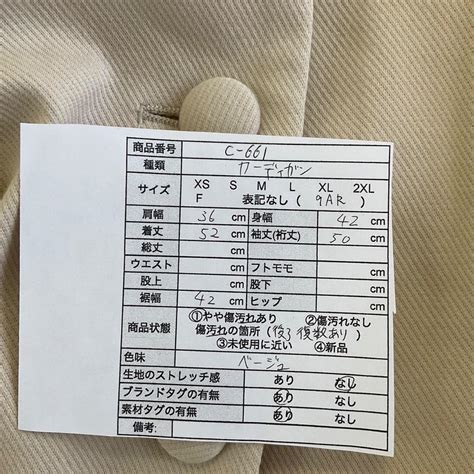 商品番号 C-661
種類 カーディガン
サイズ XS S M L XL 2XL
F 表記なし( 9AR )
肩幅 36 cm 身幅 42 cm
着丈 52 cm 袖丈(裄丈) 50 cm
総丈 cm cm
ウエスト cm フトモモ cm
股上 cm 股下 cm
裾幅 42 cm ヒップ cm
商品状態 ①やや傷汚れあり ②傷汚れなし
傷汚れの箇所(後ろ 複数あり)
③未使用に近い ④新品
色味 ベージュ
生地のストレッチ感 あり なし
ブランドタグの有無 あり なし
素材タグの有無 あり なし
備考: